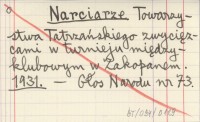 Narciarze Towarzy-
stwa Tatrzańskiego zwycięz-
cami w turnieju między-
klubowym w Zakopanem.
1931. — Głos Narodu nr 73.